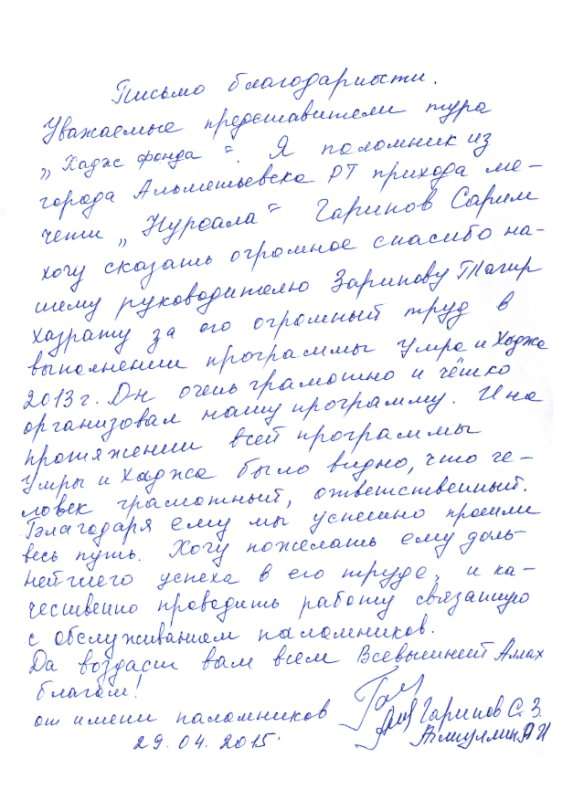 Письмо благодарности.
Уважаемые представители тура
„Хадж фонда“. Я паломник из
города Альметьевска РТ прихода ме-
чети „Нуроала“ Гарипов Сарим
хочу сказать огромное спасибо на-
шему руководителю Зарипову Тагир
хазрату за его огромный труд в
выполнении программы Умра и Хаджа
2013 г. Он очень грамотно и чётко
организовал нашу программу. И на
протяжении всей программы
Умры и Хаджа было видно, что че-
ловек грамотный, ответственный.
Благодаря ему мы успешно прошли
весь путь. Хочу пожелать ему даль-
нейшего успеха в его труде, и ка-
чественно проводить работу связанную
с обслуживанием паломников.
Да воздаст вам всем Всевышний Аллах
благом!
от имени паломников
Гарипов С. З.
29.04.2015.